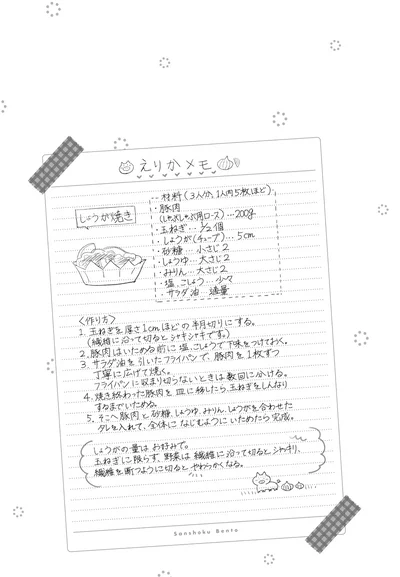 えりかメモ
しょうが焼き
材料(3人分、1人肉5枚ほど)
・豚肉
(しゃぶしゃぶ用ロース)…200g
・玉ねぎ…1/2個
・しょうが(チューブ)…5cm
・砂糖…小さじ2
・しょうゆ…大さじ2
・みりん…大さじ2
・塩、こしょう…少々
・サラダ油…適量
〈作り方〉
1. 玉ねぎを厚さ1cmほどの半月切りにする。
(繊維に沿って切るとシャキシャキです。)
2. 豚肉はいためる前に塩、こしょうで下味をつけておく。
3. サラダ油を引いたフライパンで、豚肉を1枚ずつ
丁寧に広げて焼く。
フライパンに収まり切らないときは数回に分ける。
4. 焼き終わった豚肉を皿に移したら、玉ねぎをしんなり
するまでいためる。
5. そこへ豚肉と砂糖、しょうゆ、みりん、しょうがを合わせた
タレを入れて、全体になじむようにいためたら完成。
しょうがの量はお好みで。
玉ねぎに限らず、野菜は繊維に沿って切るとシャッキリ、
繊維を断つように切るとやわらかくなる。
Sanshoku Bento